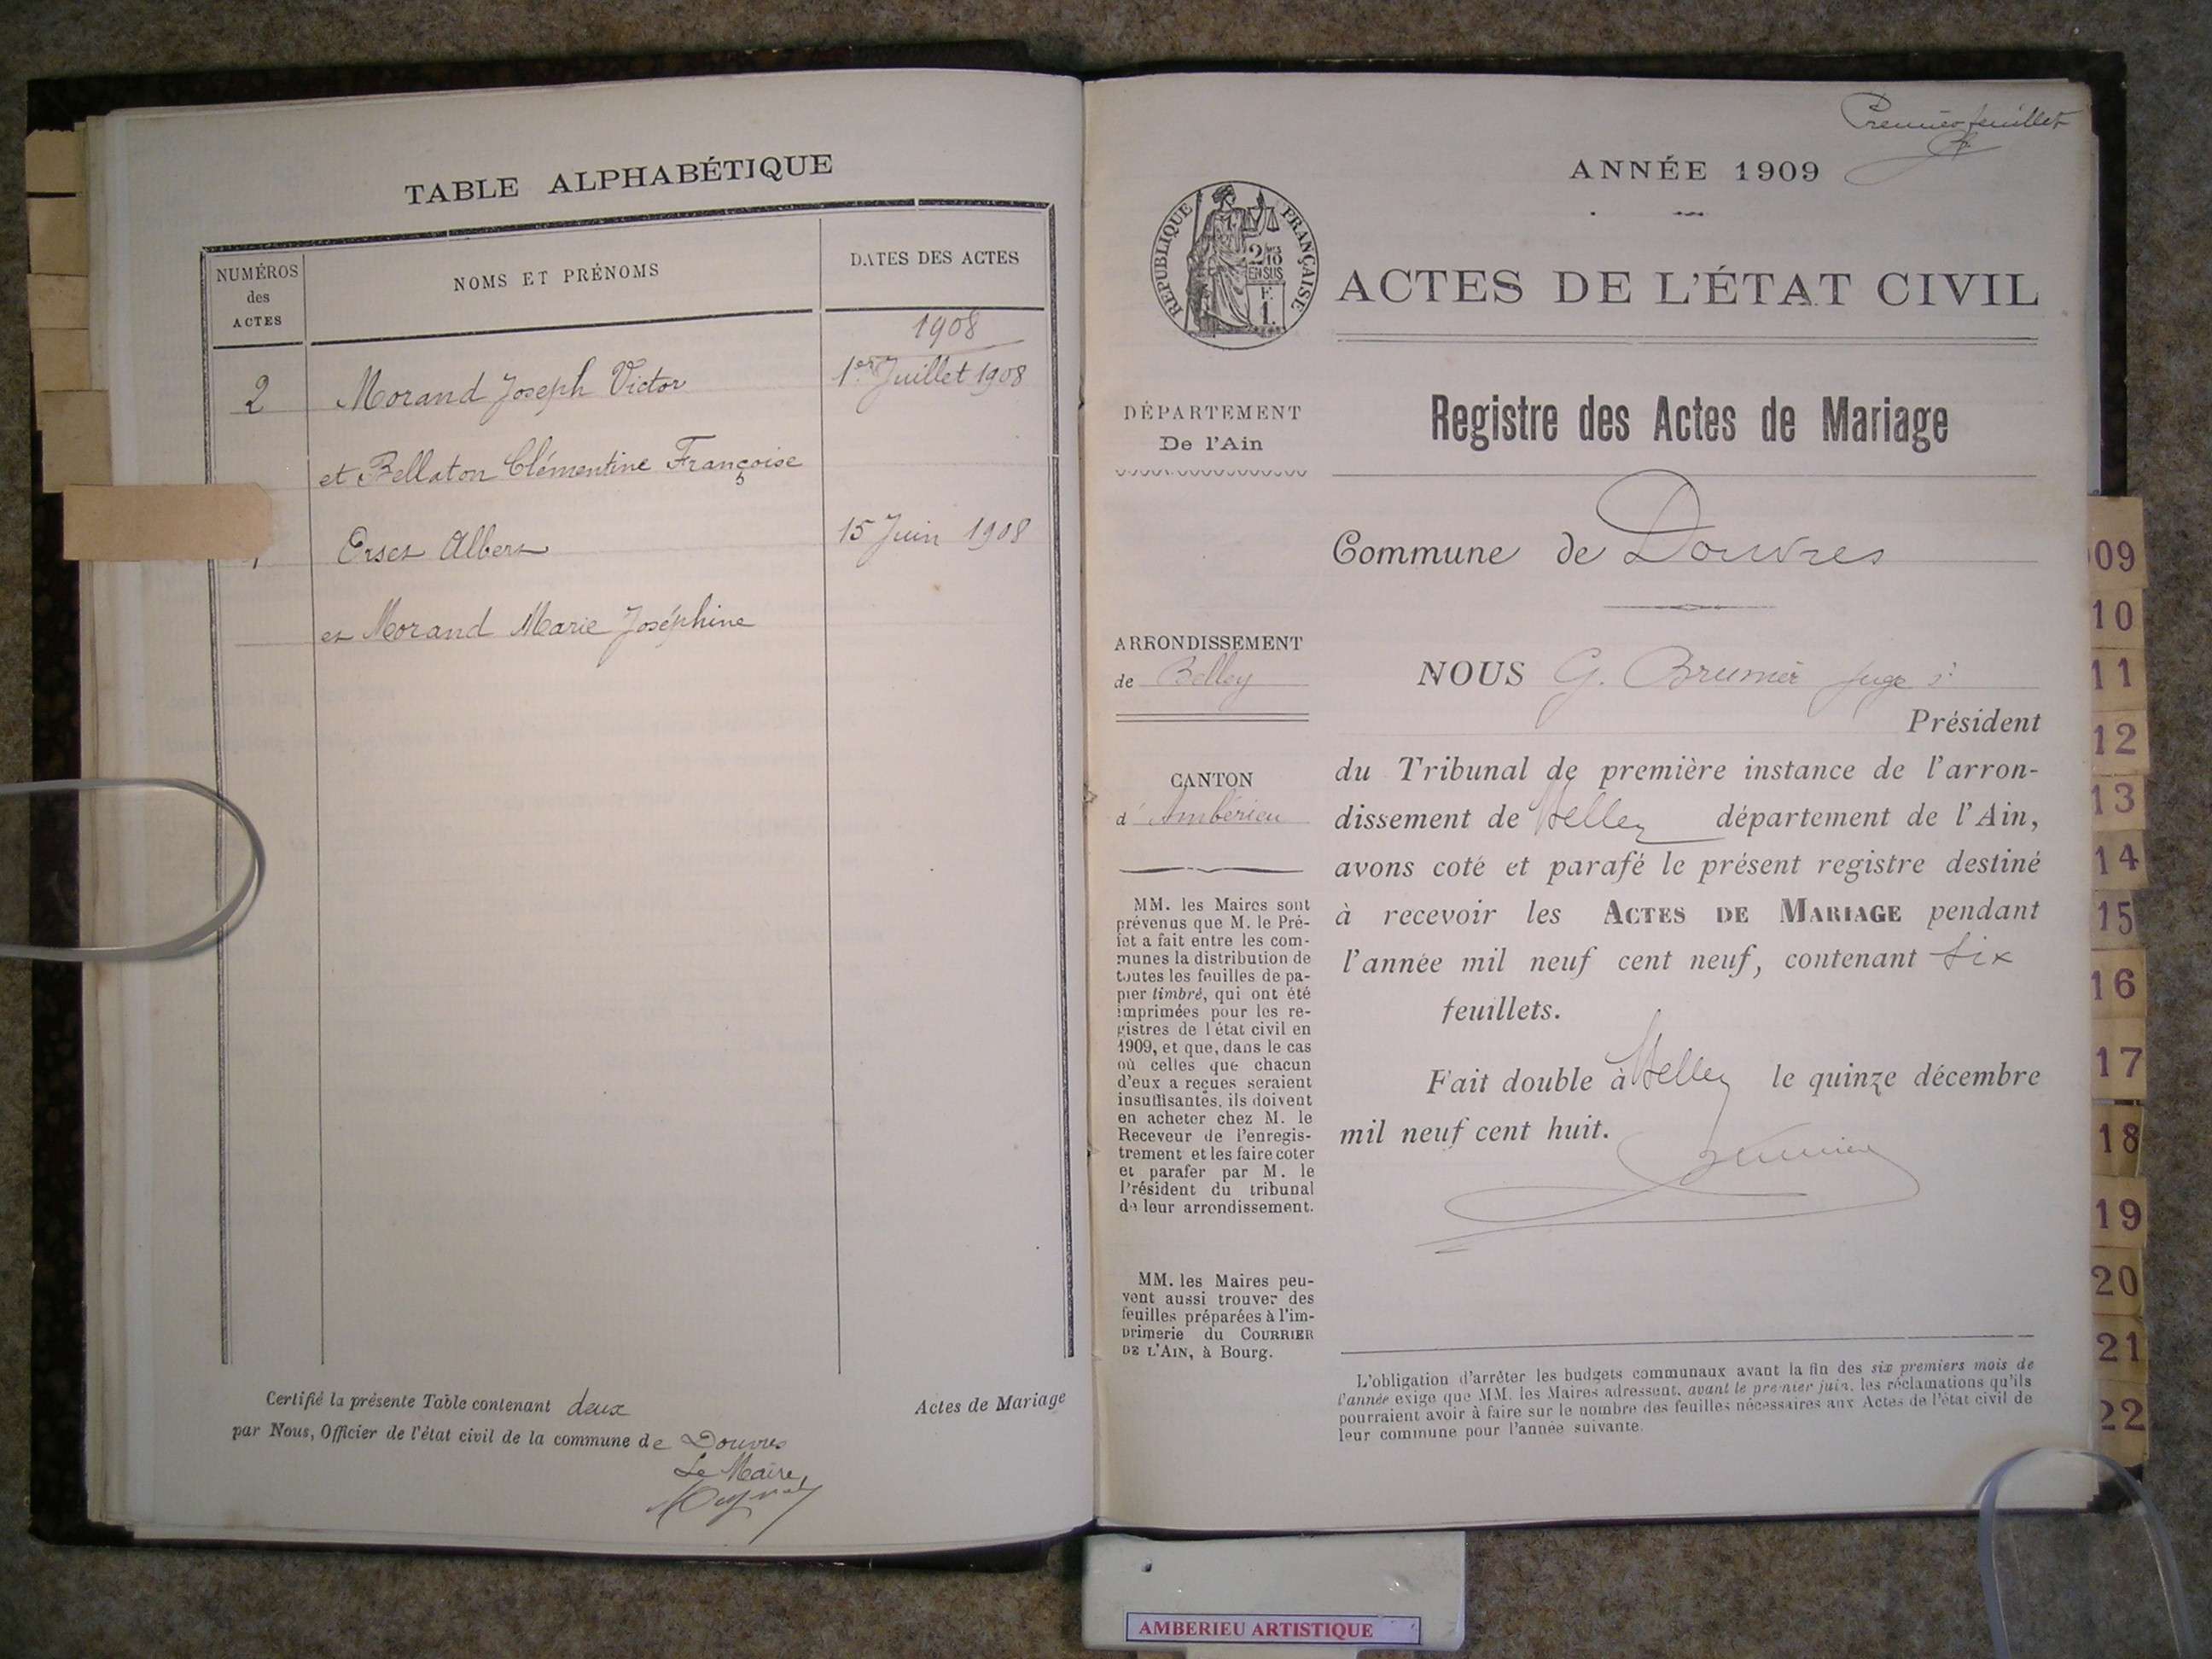 TABLE ALPHABÉTIQUE
NUMÉROS
des
ACTES
NOMS ET PRÉNOMS
DATES DES ACTES
1908
2 Morand Joseph Victor 1er Juillet 1908
et Bellaton Clémentine Françoise
Albert 15 Juin 1908
et Morand Marie Joséphine
Certifié la présente Table contenant deux Actes de Mariage
par Nous, Officier de l'état civil de la commune de Douvres
Le Maire,
Premier feuillet
ANNÉE 1909
RÉPUBLIQUE FRANÇAISE
2/10
EN SUS
F.
1.
ACTES DE L'ÉTAT CIVIL
DÉPARTEMENT
De l'Ain
Registre des Actes de Mariage
Commune de Douvres
ARRONDISSEMENT
de Belley
CANTON
d'Ambérieu
MM. les Maires sont
prévenus que M. le Pré-
fet a fait entre les com-
munes la distribution de
toutes les feuilles de pa-
pier timbré, qui ont été
imprimées pour les re-
gistres de l'état civil en
1909, et que, dans le cas
où celles que chacun
d'eux a reçues seraient
insuffisantes, ils doivent
en acheter chez M. le
Receveur de l'enregis-
trement et les faire coter
et parafer par M. le
Président du tribunal
de leur arrondissement.
MM. les Maires peu-
vent aussi trouver des
feuilles préparées à l'im-
primerie du COURRIER
DE L'AIN, à Bourg.
NOUS G. Brunier Juge
Président
du Tribunal de première instance de l'arron-
dissement de Belley département de l'Ain,
avons coté et parafé le présent registre destiné
à recevoir les ACTES DE MARIAGE pendant
l'année mil neuf cent neuf, contenant six
feuillets.
Fait double à Belley le quinze décembre
mil neuf cent huit.
Brunier
L'obligation d'arrêter les budgets communaux avant la fin des six premiers mois de
l'année exige que MM. les Maires adressent, avant le premier juin, les réclamations qu'ils
pourraient avoir à faire sur le nombre des feuilles nécessaires aux Actes de l'état civil de
leur commune pour l'année suivante.
09
10
11
12
13
14
15
16
17
18
19
20
21
22
AMBERIEU ARTISTIQUE